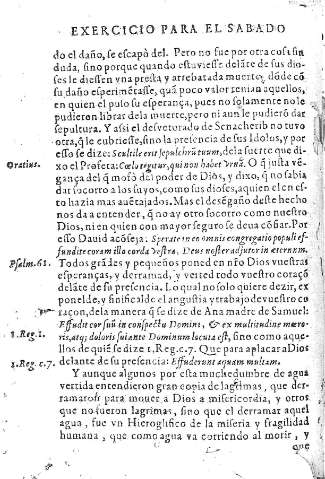 EXERCICIO PARA EL SABADO
do el daño, se escapò del. Pero no fue por otra cosa sin
duda, sino porque quando estuviesse delãte de sus dio-
ses le diessen vna presta y arrebatada muerte, dõde cõ
su daño esperimẽtasse, quã poco valor tenian aquellos,
en quien el puso su esperança, pues no solamente no le
pudieron librar dela muerte, pero ni aun le pudierõ dar
sepultura. Y assi el desveturado de Senacherib no tuvo
otra, q̃ le cubriesse, sino la presencia de sus Idolos, y por
esso se dize: Scultile erit sepulchrũ tuum, dela suerte que di-
Oratius.
xo el Profeta: Cœlo tegitur, qui non habet Vrnã. O q̃ justa vẽ-
gança del q̃ mofò del poder de Diòs, y dixo, q̃ no sabia
dar socorro a los suyos, como sus dioses, aquien el en es-
to hazia mas avẽtajados. Mas el desẽgaño deste hecho
nos da a entender, q̃ no ay otro socorro como nuestro
Dios, ni en quien con mayor seguro se deva cõfiar. Por
esso David acõseja. Sperate in eo omnis congregatio populi ef-
fundite coram illa corda vestra, Deus noster adjutor in eternum.
Psalm. 61.
Todos grãdes y pequeños poned en nr̃o Dios vuestras
esperanças, y derramad, y verted todo vuestro coraçõ
delãte de su presencia. Lo qual no solo quiere dezir, ex
ponelde, y sinificalde el angustia y trabajo de vuestro co
raçon, dela manera q̃ se dize de Ana madre de Samuel:
1. Reg. 1.
Effudit cor suũ in conspectu Domini, & ex multitudine mœro-
ris, atq; doloris suiante Dominum locuta est, sino como aque-
llos de quiẽ se dize 1. Reg. c. 7. Que para aplacar a Dios
1. Reg. c. 7.
delante de su presencia: Effuderunt aquam multam.
Y aunque algunos por esta muchedumbre de agua
vertida entendieron gran copia de lagrimas, que der-
ramaron para mover a Dios a misericordia, y otros
que no fueron lagrimas, sino que el derramar aquel
agua, fue vn Hieroglifico de la miseria y fragilidad
humana, que como agua va corriendo al morir, y
que